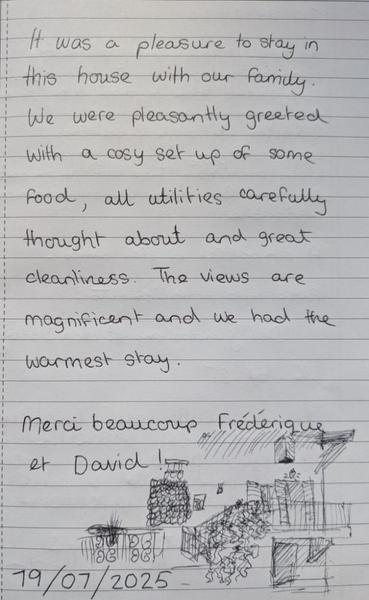 It was a pleasure to stay in
this house with our family.
We were pleasantly greeted
with a cosy set up of some
food, all utilities carefully
thought about and great
cleanliness. The views are
magnificent and we had the
warmest stay.
Merci beaucoup Frédérique
et David!
19/07/2025